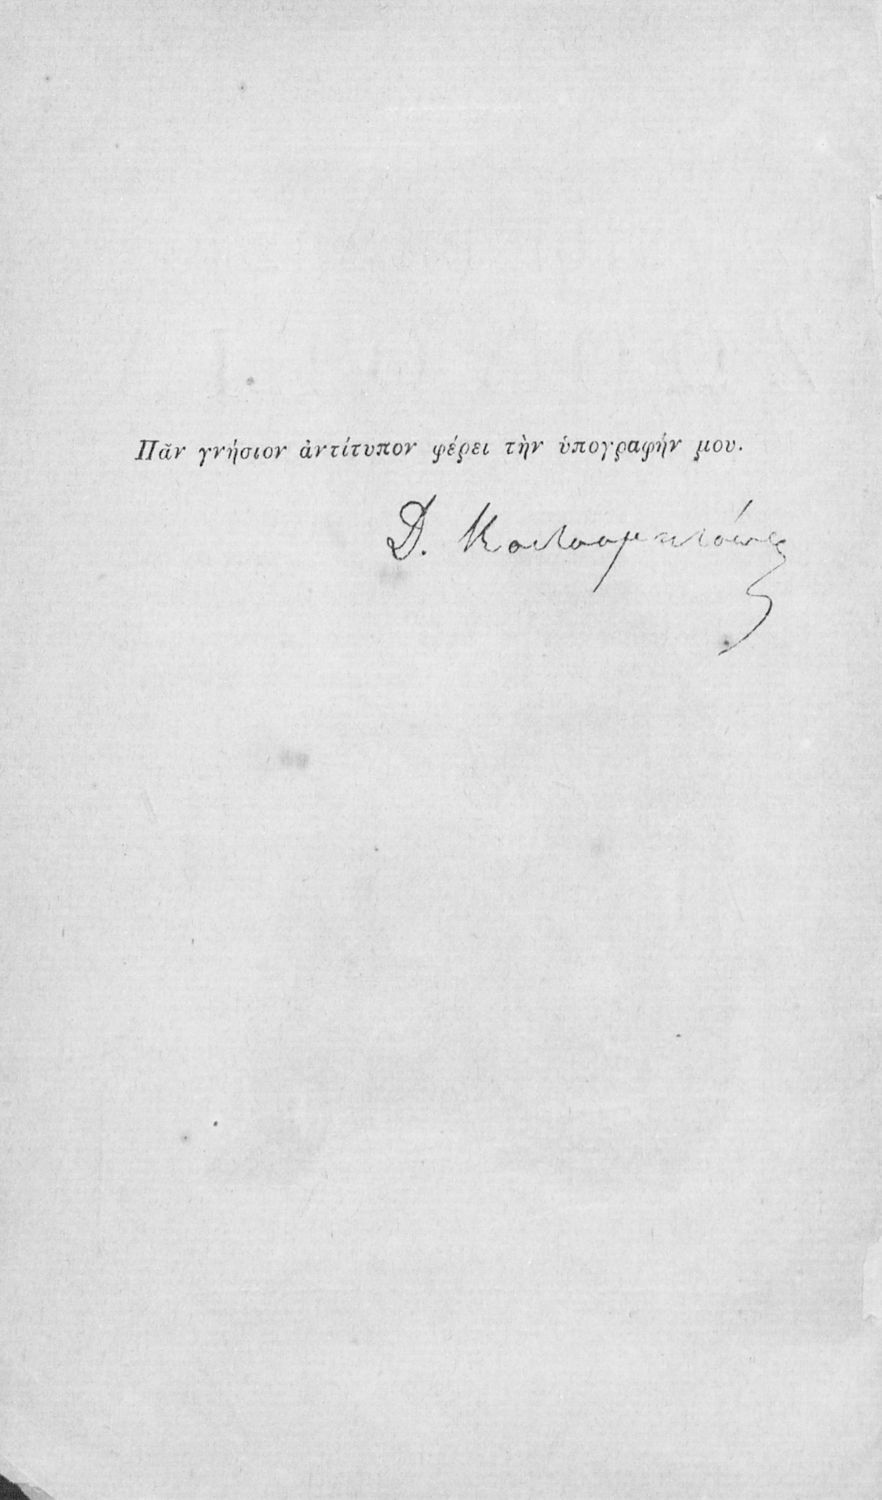 Πᾶν γνήσιον ἀντίτυπον φέρει τὴν ὑπογραφήν μου.
Δ.